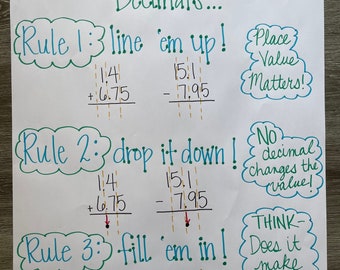 Decimals...
Rule 1: line 'em up!
14
+ 6.75
15.1
- 7.95
Place
Value
Matters!
Rule 2: drop it down!
14
+ 6.75
.
15.1
- 7.95
.
No
decimal
changes the
value!
Rule 3: fill 'em in!
THINK-
Does it
make